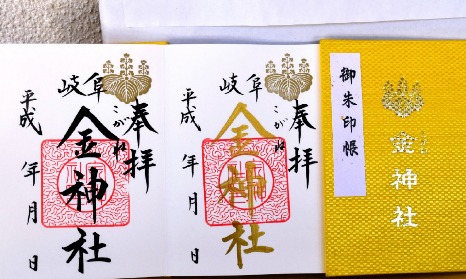 奉拝
岐阜
こがね
金神社
平成 年 月 日
奉拝
岐阜
こがね
金神社
平成 年 月 日
御朱印帳
金神社